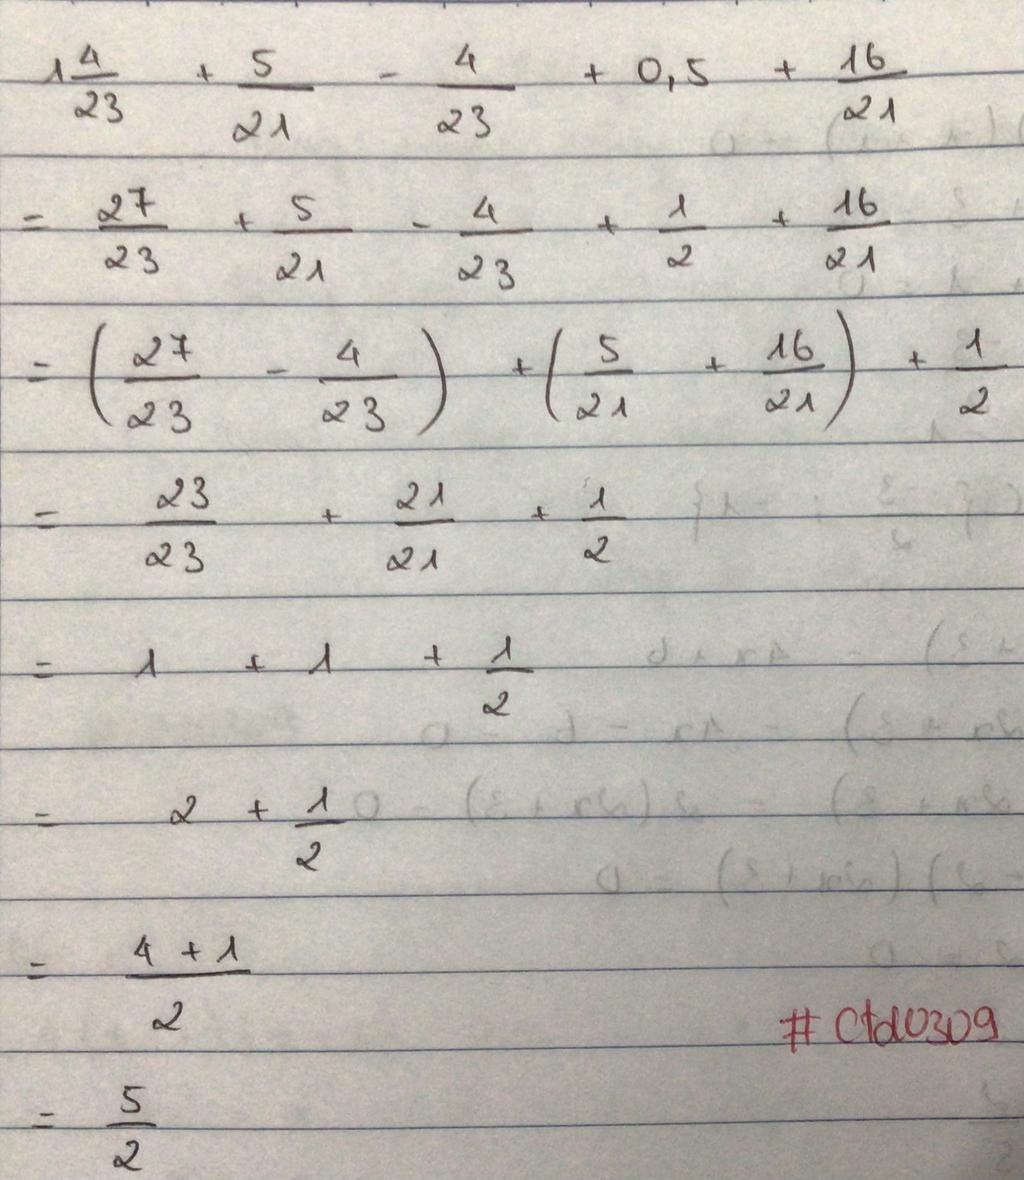 1 4/23 + 5/21 - 4/23 + 0,5 + 16/21
= 27/23 + 5/21 - 4/23 + 1/2 + 16/21
= (27/23 - 4/23) + (5/21 + 16/21) + 1/2
= 23/23 + 21/21 + 1/2
= 1 + 1 + 1/2
= 2 + 1/2
= (4 + 1)/2
# Ctd0309
= 5/2